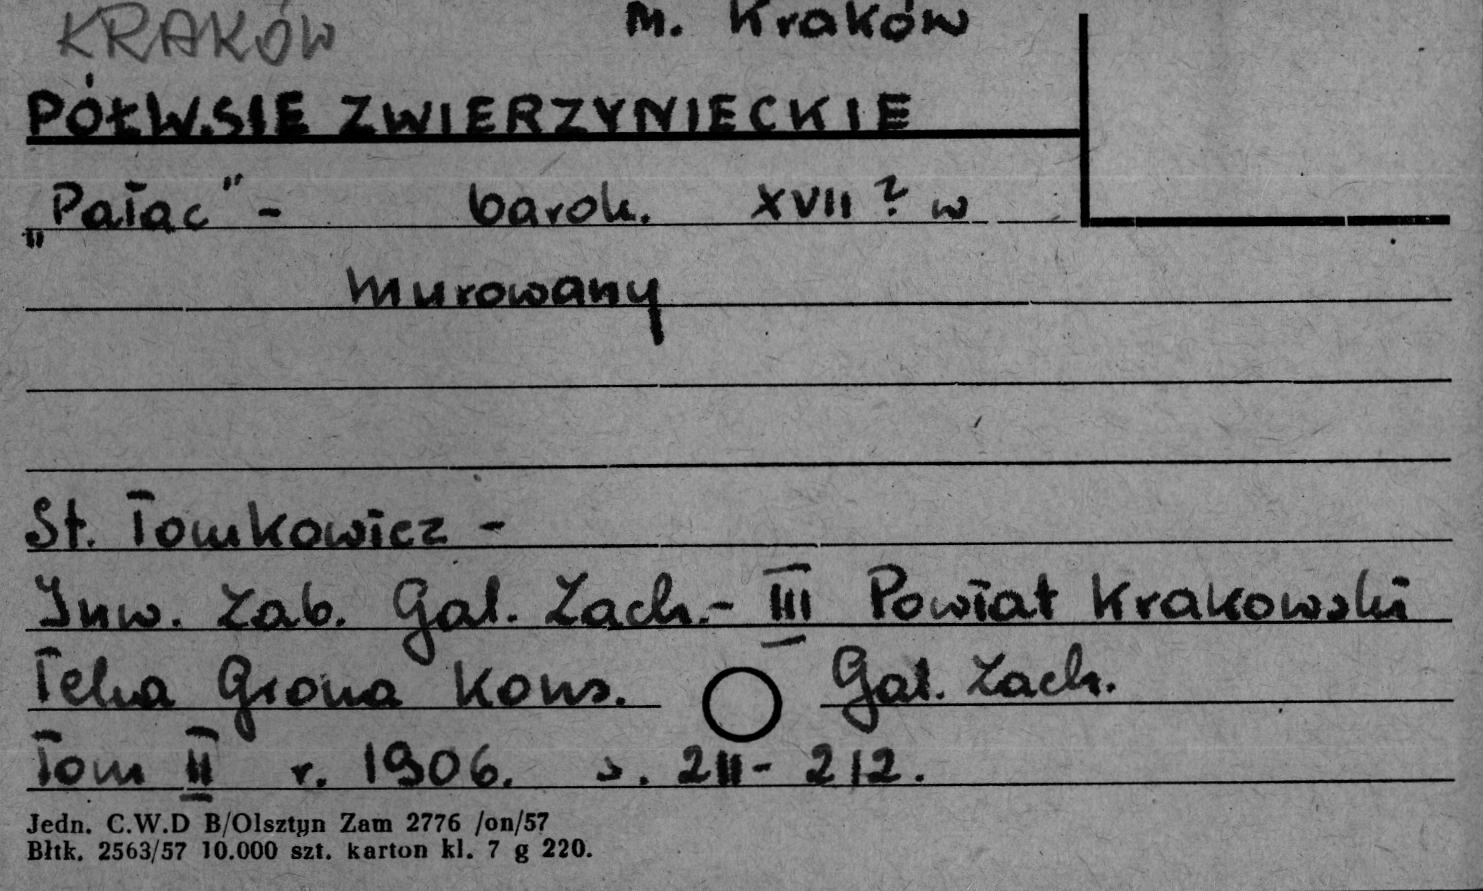 KRAKÓW m. Kraków
PÓŁWSIE ZWIERZYNIECKIE
„Pałac" - barok. XVII ? w
murowany
St. Tomkowicz -
Inw. Zab. Gal. Zach. - III Powiat Krakowski
Teka Grona Kons. Gal. Zach.
Tom II r. 1906. s. 211 - 212.
Jedn. C.W.D B/Olsztyn Zam 2776 /on/57
Błtk. 2563/57 10.000 szt. karton kl. 7 g 220.